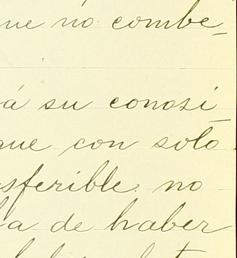 ue no combe-
á su conosi
que con solo
sferible no
ba de haber